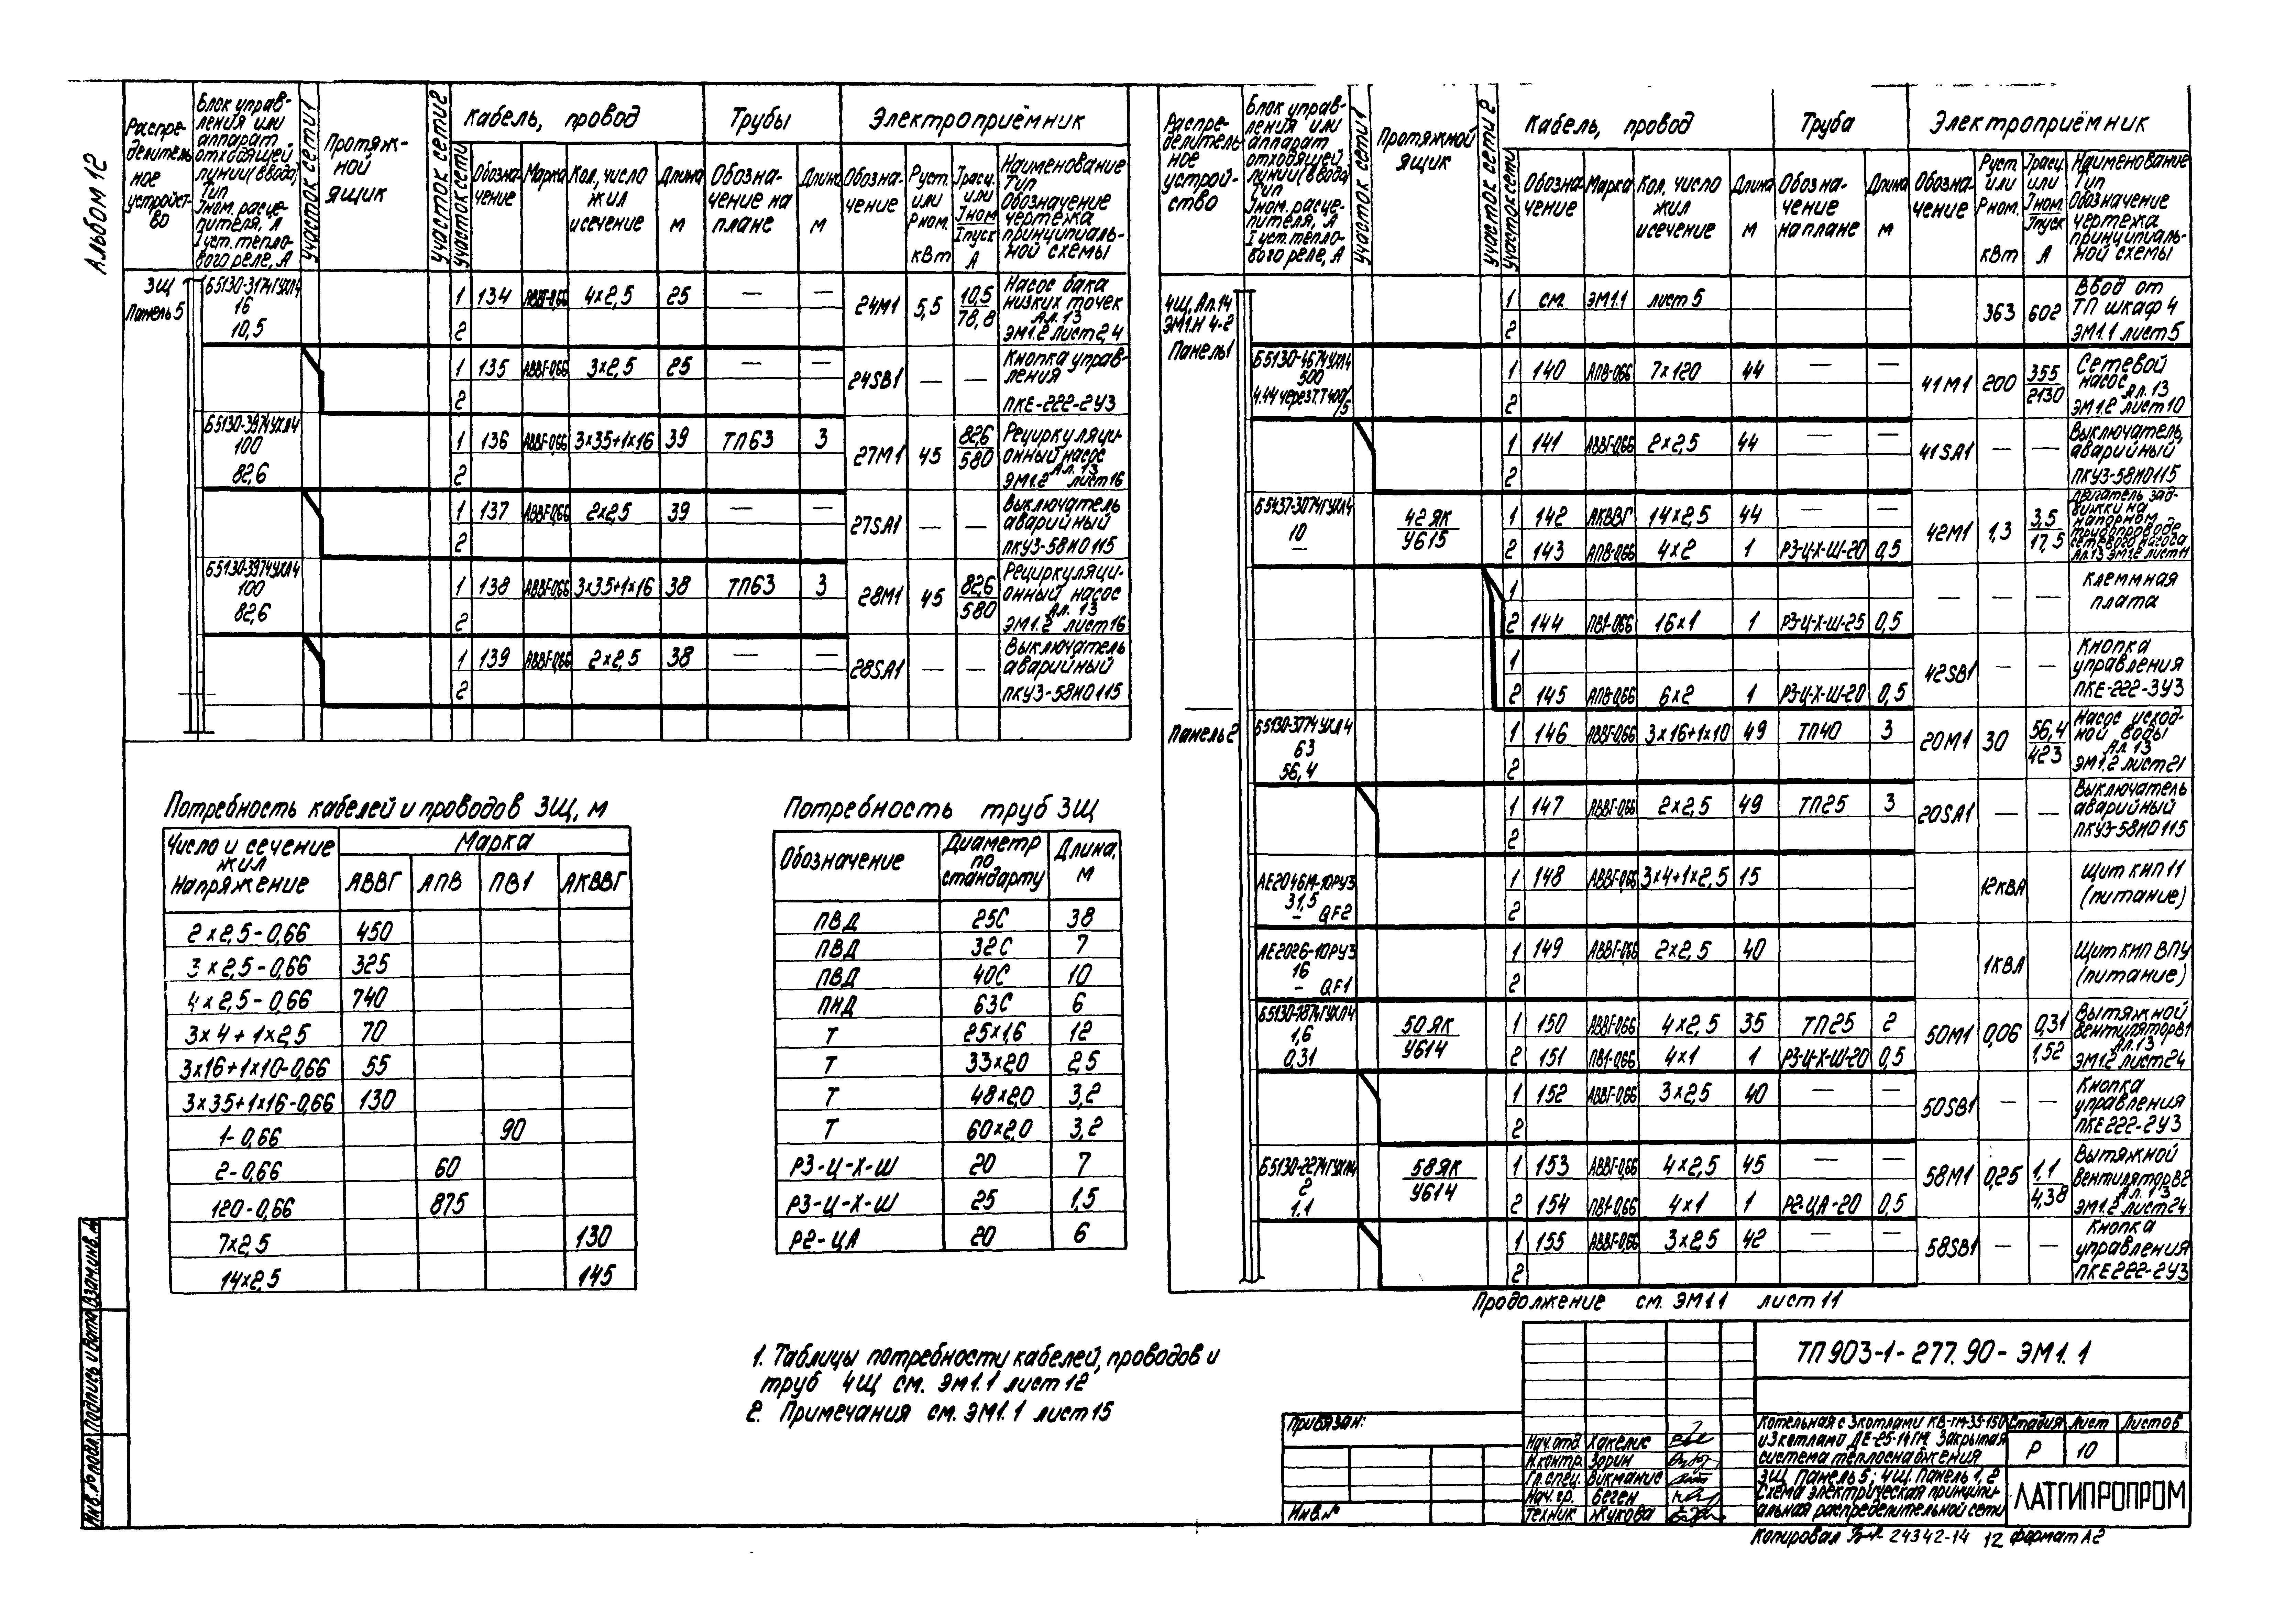 Альбом 12
Распре-
делитель-
ное
устройст-
во
Блок управ-
ления или
аппарат
отходящей
линии (ввода)
Тип
Iном. расце-
пителя, А
I уст. тепло-
вого реле, А
Участок сети 1
Протяж-
ной
ящик
Участок сети 2
Участок сети
Кабель, провод
Трубы
Электроприёмник
Обозна-
чение
Марка
Кол., число
жил
и сечение
Длина
м
Обозна-
чение на
плане
Длина
м
Обозна-
чение
Руст.
или
Рном.
кВт
Iрасч.
или
Iном
Iпуск
А
Наименование
Тип
Обозначение
чертежа
принципиаль-
ной схемы
3Щ
Панель 5
Б5130-3174ГУХЛ4
16
10,5
1 134 АВВГ-0,66 4х2,5 25 — —
2
24М1 5,5 10,5
78,8
Насос бака
низких точек
Ал. 13
ЭМ1.2 лист 2,4
1 135 АВВГ-0,66 3х2,5 25 — —
2
24SB1 — —
Кнопка управ-
ления
ПКЕ-222-2У3
Б5130-3974УХЛ4
100
82,6
1 136 АВВГ-0,66 3х35+1х16 39 ТП63 3
2
27М1 45 82,6
580
Рециркуляци-
онный насос
Ал. 13
ЭМ1.2 лист 16
1 137 АВВГ-0,66 2х2,5 39 — —
2
27SA1 — —
Выключатель
аварийный
ПКУ3-58И0115
Б5130-3974УХЛ4
100
82,6
1 138 АВВГ-0,66 3х35+1х16 38 ТП63 3
2
28М1 45 82,6
580
Рециркуляци-
онный насос
Ал. 13
ЭМ1.2 лист 16
1 139 АВВГ-0,66 2х2,5 38 — —
2
28SA1 — —
Выключатель
аварийный
ПКУ3-58И0115
Потребность кабелей и проводов 3Щ, м
Число и сечение
жил
Напряжение
Марка
АВВГ АПВ ПВ1 АКВВГ
2х2,5-0,66 450
3х2,5-0,66 325
4х2,5-0,66 740
3х4+1х2,5 70
3х16+1х10-0,66 55
3х35+1х16-0,66 130
1-0,66 90
2-0,66 60
120-0,66 875
7х2,5 130
14х2,5 145
Потребность труб 3Щ
Обозначение
Диаметр
по
стандарту
Длина,
м
ПВД 25С 38
ПВД 32С 7
ПВД 40С 10
ПНД 63С 6
Т 25х1,6 12
Т 33х2,0 2,5
Т 48х2,0 3,2
Т 60х2,0 3,2
РЗ-Ц-Х-Ш 20 7
РЗ-Ц-Х-Ш 25 1,5
Р2-ЦА 20 6
Распре-
делитель-
ное
устрой-
ство
Блок управ-
ления или
аппарат
отходящей
линии (ввода)
Тип
Iном. расце-
пителя, А
I уст. тепло-
вого реле, А
Участок сети 1
Протяжной
ящик
Участок сети 2
Участок сети
Кабель, провод
Труба
Электроприёмник
Обозна-
чение
Марка
Кол. число
жил
и сечение
Длина
м
Обозна-
чение
на плане
Длина
м
Обозна-
чение
Руст.
или
Рном.
кВт
Iрасч.
или
Iном.
Iпуск
А
Наименование
Тип
Обозначение
чертежа
принципиаль-
ной схемы
4Щ, Ал.14
ЭМ1.И 4-2
Панель 1
1 см. ЭМ1.1 лист 5
2
363 602
Ввод от
ТП шкаф 4
ЭМ1.1 лист 5
Б5130-4674УХЛ4
500
4.44 через Т.Т 400/5
1 140 АПВ-0,66 7х120 44 — —
2
41М1 200 355
2130
Сетевой
насос
Ал. 13
ЭМ1.2 лист 10
1 141 АВВГ-0,66 2х2,5 44 — —
2
41SA1 — —
Выключатель
аварийный
ПКУ3-58И0115
Б5437-3074ГУХЛ4
10
—
42ЯК
У615
1 142 АКВВГ 14х2,5 44 — —
2 143 АПВ-0,66 4х2 1 РЗ-Ц-Х-Ш-20 0,5
42М1 1,3 3,5
17,5
Двигатель зад-
вижки на
напорном
трубопроводе
сетевого насоса
Ал.13 ЭМ1.2 лист 11
1
2 144 ПВ1-0,66 16х1 1 РЗ-Ц-Х-Ш-25 0,5
— — —
Клеммная
плата
1
2 145 АПВ-0,66 6х2 1 РЗ-Ц-Х-Ш-20 0,5
42SB1 — —
Кнопка
управления
ПКЕ-222-3У3
Панель 2
Б5130-3774УХЛ4
63
56,4
1 146 АВВГ-0,66 3х16+1х10 49 ТП40 3
2
20М1 30 56,4
423
Насос исход-
ной воды
Ал. 13
ЭМ1.2 лист 21
1 147 АВВГ-0,66 2х2,5 49 ТП25 3
2
20SA1 — —
Выключатель
аварийный
ПКУ3-58И0115
АЕ2046М-10РУ3
31,5
— QF2
1 148 АВВГ-0,66 3х4+1х2,5 15
2
12кВА
Щит КИП 11
(питание)
АЕ2026-10РУ3
16
— QF1
1 149 АВВГ-0,66 2х2,5 40
2
1кВА
Щит КИП ВПУ
(питание)
Б5130-1874ГУХЛ4
1,6
0,31
50ЯК
У614
1 150 АВВГ-0,66 4х2,5 35 ТП25 2
2 151 ПВ1-0,66 4х1 1 РЗ-Ц-Х-Ш-20 0,5
50М1 0,06 0,31
1,52
Вытяжной
вентилятор В1
Ал. 13
ЭМ1.2 лист 24
1 152 АВВГ-0,66 3х2,5 40 — —
2
50SB1 — —
Кнопка
управления
ПКЕ222-2У3
Б5130-2274ГУХЛ4
2
1.1
58ЯК
У614
1 153 АВВГ-0,66 4х2,5 45 — —
2 154 ПВ1-0,66 4х1 1 Р2-ЦА-20 0,5
58М1 0,25 1,1
4,38
Вытяжной
вентилятор В2
Ал. 13
ЭМ1.2 лист 24
1 155 АВВГ-0,66 3х2,5 42 — —
2
58SB1 — —
Кнопка
управления
ПКЕ222-2У3
Продолжение см. ЭМ1.1 лист 11
1. Таблицы потребности кабелей, проводов и
труб 4Щ см. ЭМ1.1 лист 12
2. Примечания см. ЭМ1.1 лист 15
Привязан:
Инв.№
Нач. отд. Хакелис
Н.контр. Зорин
Гл. спец. Викманис
Нач. гр. Беген
Техник Жукова
ТП 903-1-277.90-ЭМ1.1
Котельная с 3 котлами КВ-ГМ-35-150
и 3 котлами ДЕ-25-14ГМ. Закрытая
система теплоснабжения
Стадия Лист Листов
Р 10
3Щ Панель 5; 4Щ. Панель 1, 2
Схема электрическая принципи-
альная распределительной сети
ЛАТГИПРОПРОМ
Копировал 24342-14 12 Формат А2
Инв.№ подл. Подпись и дата Взам.инв.№